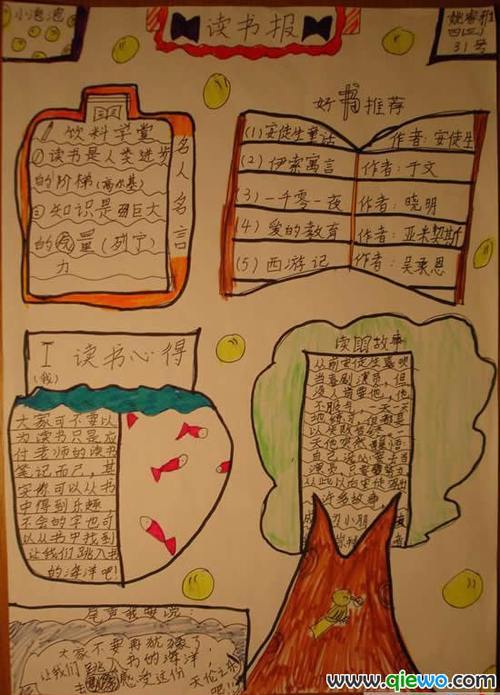 小泡泡
读书报
31号
饮料学堂
①读书是人类进步
的阶梯(高尔基)
②知识是强巨大
的力量(列宁)
力
名人名言
好书推荐
(1)安徒生童话 作者:安徒生
(2)伊索寓言 作者:于文
(3)一千零一夜 作者:晓明
(4)爱的教育 作者:亚米契斯
(5)西游记 作者:吴承恩
I 读书心得
(我)
大家可不要以
为读书只是应
付老师的读书
笔记而已,其
实你可以从书
中得到乐趣,
不会的字也可
以从书中找到
让我们跳入书
的海洋吧!
读书故事
从前安徒生喜欢
当喜剧演员,但
没人肯要他,他
许多故事
尾声我要说:
大家不要再犹豫了,
让我们跳入书的海洋,
去感受这份天伦之乐
吧!!
www.qiewo.com